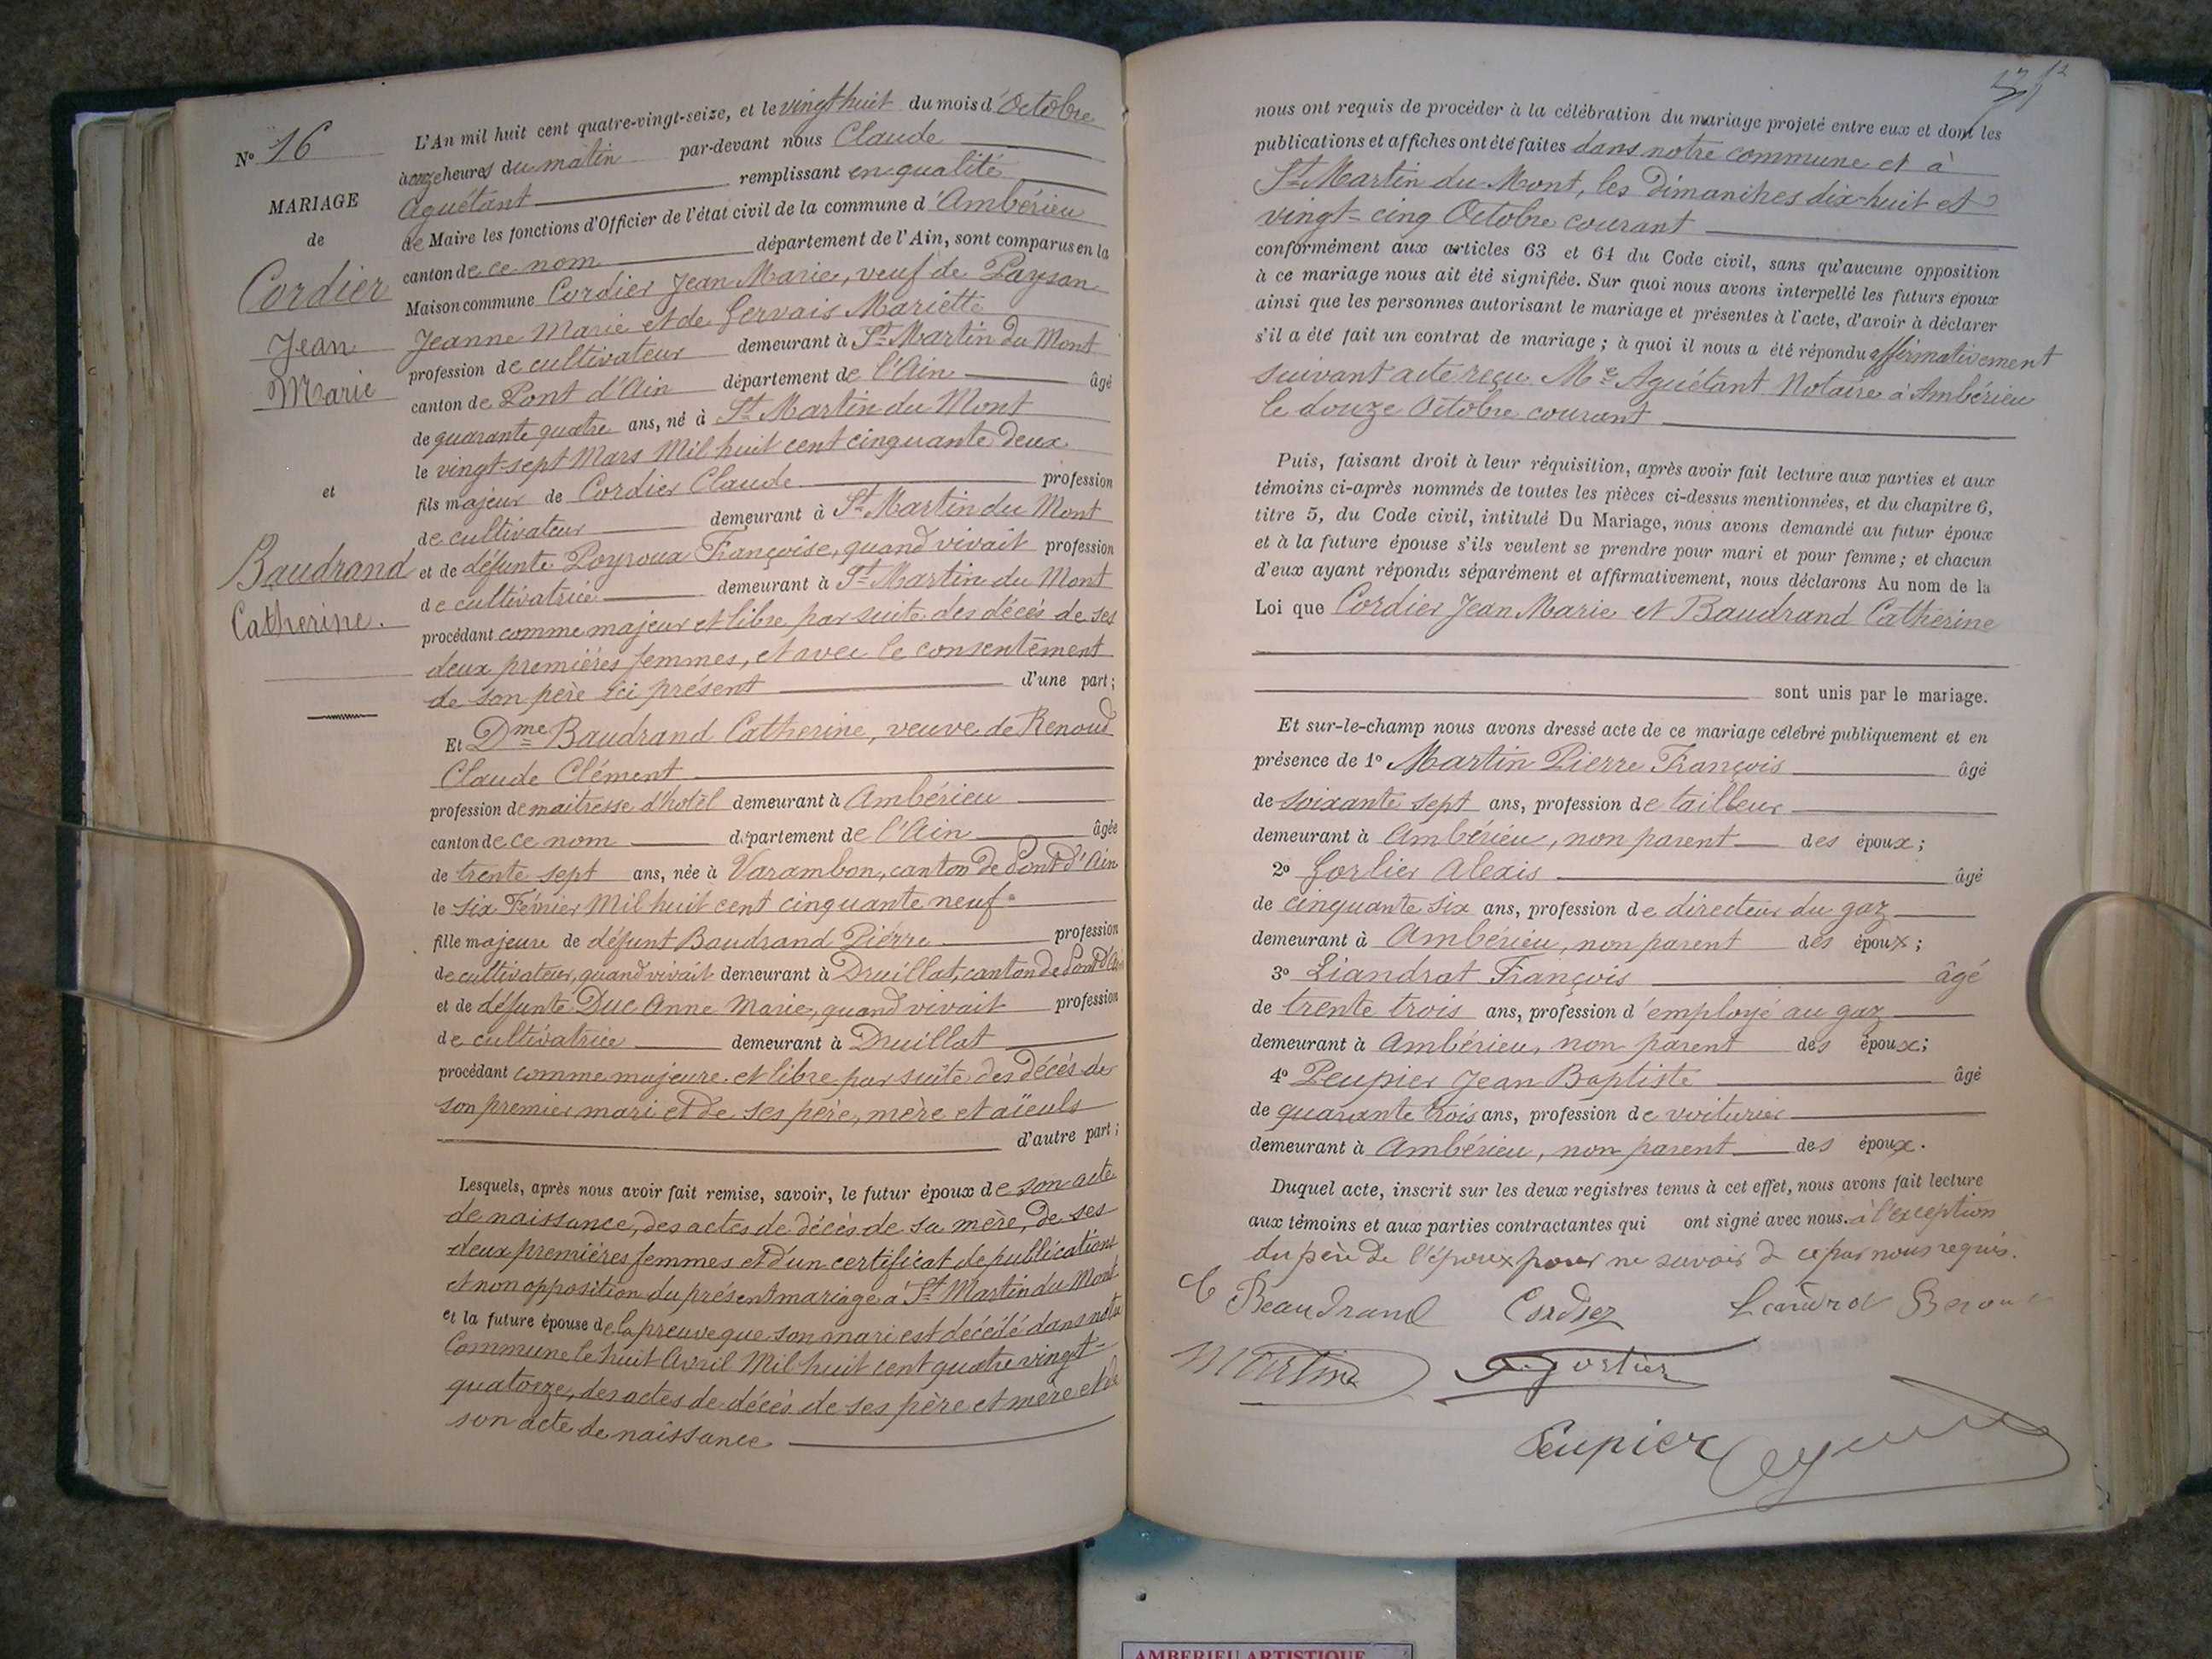 N° 16
MARIAGE
de
Cordier
Jean
Marie
et
Baudrand
Catherine.
L'An mil huit cent quatre-vingt-seize, et le vingt huit du mois d'Octobre
à onze heures du matin par-devant nous Claude
Aguétant remplissant en qualité
de Maire les fonctions d'Officier de l'état civil de la commune d'Ambérieu
canton de ce nom département de l'Ain, sont comparus en la
Maison commune Cordier Jean Marie, veuf de Paysan
Jeanne Marie et de Gervais Mariette
profession de cultivateur demeurant à St Martin du Mont
canton de Pont d'Ain département de l'Ain âgé
de quarante quatre ans, né à St Martin du Mont
le vingt-sept Mars Mil huit cent cinquante deux
fils majeur de Cordier Claude profession
de cultivateur demeurant à St Martin du Mont
et de défunte Poyroux Françoise, quand vivait profession
de cultivatrice demeurant à St Martin du Mont
procédant comme majeur et libre par suite des décès de ses
deux premières femmes, et avec le consentement
de son père ici présent d'une part;
Et Dme Baudrand Catherine, veuve de Renoud
Claude Clément
profession de maitresse d'hotel demeurant à Ambérieu
canton de ce nom département de l'Ain âgée
de trente sept ans, née à Varambon, canton de Pont d'Ain
le six Février Mil huit cent cinquante neuf
fille majeure de défunt Baudrand Pierre profession
de cultivateur, quand vivait demeurant à Druillat, canton de Pont d'Ain
et de défunte Duc Anne Marie, quand vivait profession
de cultivatrice demeurant à Druillat
procédant comme majeure et libre par suite des décès de
son premier mari et de ses père, mère et aïeuls
d'autre part;
Lesquels, après nous avoir fait remise, savoir, le futur époux de son acte
de naissance, des actes de décès de sa mère, de ses
deux premières femmes et d'un certificat de publications
et non opposition du présent mariage à St Martin du Mont
et la future épouse de la preuve que son mari est décédé dans notre
Commune le huit Avril Mil huit cent quatre vingt-
quatorze, des actes de décès de ses père et mère et de
son acte de naissance
nous ont requis de procéder à la célébration du mariage projeté entre eux et dont les
publications et affiches ont été faites dans notre commune et à
St Martin du Mont, les dimanches dix-huit et
vingt-cinq Octobre courant
conformément aux articles 63 et 64 du Code civil, sans qu'aucune opposition
à ce mariage nous ait été signifiée. Sur quoi nous avons interpellé les futurs époux
ainsi que les personnes autorisant le mariage et présentes à l'acte, d'avoir à déclarer
s'il a été fait un contrat de mariage; à quoi il nous a été répondu affirmativement
suivant acte reçu Me Aguétant Notaire à Ambérieu
le douze Octobre courant
Puis, faisant droit à leur réquisition, après avoir fait lecture aux parties et aux
témoins ci-après nommés de toutes les pièces ci-dessus mentionnées, et du chapitre 6,
titre 5, du Code civil, intitulé Du Mariage, nous avons demandé au futur époux
et à la future épouse s'ils veulent se prendre pour mari et pour femme; et chacun
d'eux ayant répondu séparément et affirmativement, nous déclarons Au nom de la
Loi que Cordier Jean Marie et Baudrand Catherine
sont unis par le mariage.
Et sur-le-champ nous avons dressé acte de ce mariage célébré publiquement et en
présence de 1° Martin Pierre François âgé
de soixante sept ans, profession de tailleur
demeurant à Ambérieu, non parent des époux;
2° Gorlier Alexis âgé
de cinquante six ans, profession de directeur du gaz
demeurant à Ambérieu, non parent des époux;
3° Liandrat François âgé
de trente trois ans, profession d'employé au gaz
demeurant à Ambérieu, non parent des époux;
4° Peupier Jean Baptiste âgé
de quarante trois ans, profession de voiturier
demeurant à Ambérieu, non parent des époux.
Duquel acte, inscrit sur les deux registres tenus à cet effet, nous avons fait lecture
aux témoins et aux parties contractantes qui ont signé avec nous. à l'exception
du père de l'époux pour ne savoir de ce par nous requis.
C Beaudrand Cordier
Martin A. Gorlier
Peupier
AMBERIEU ARTISTIQUE